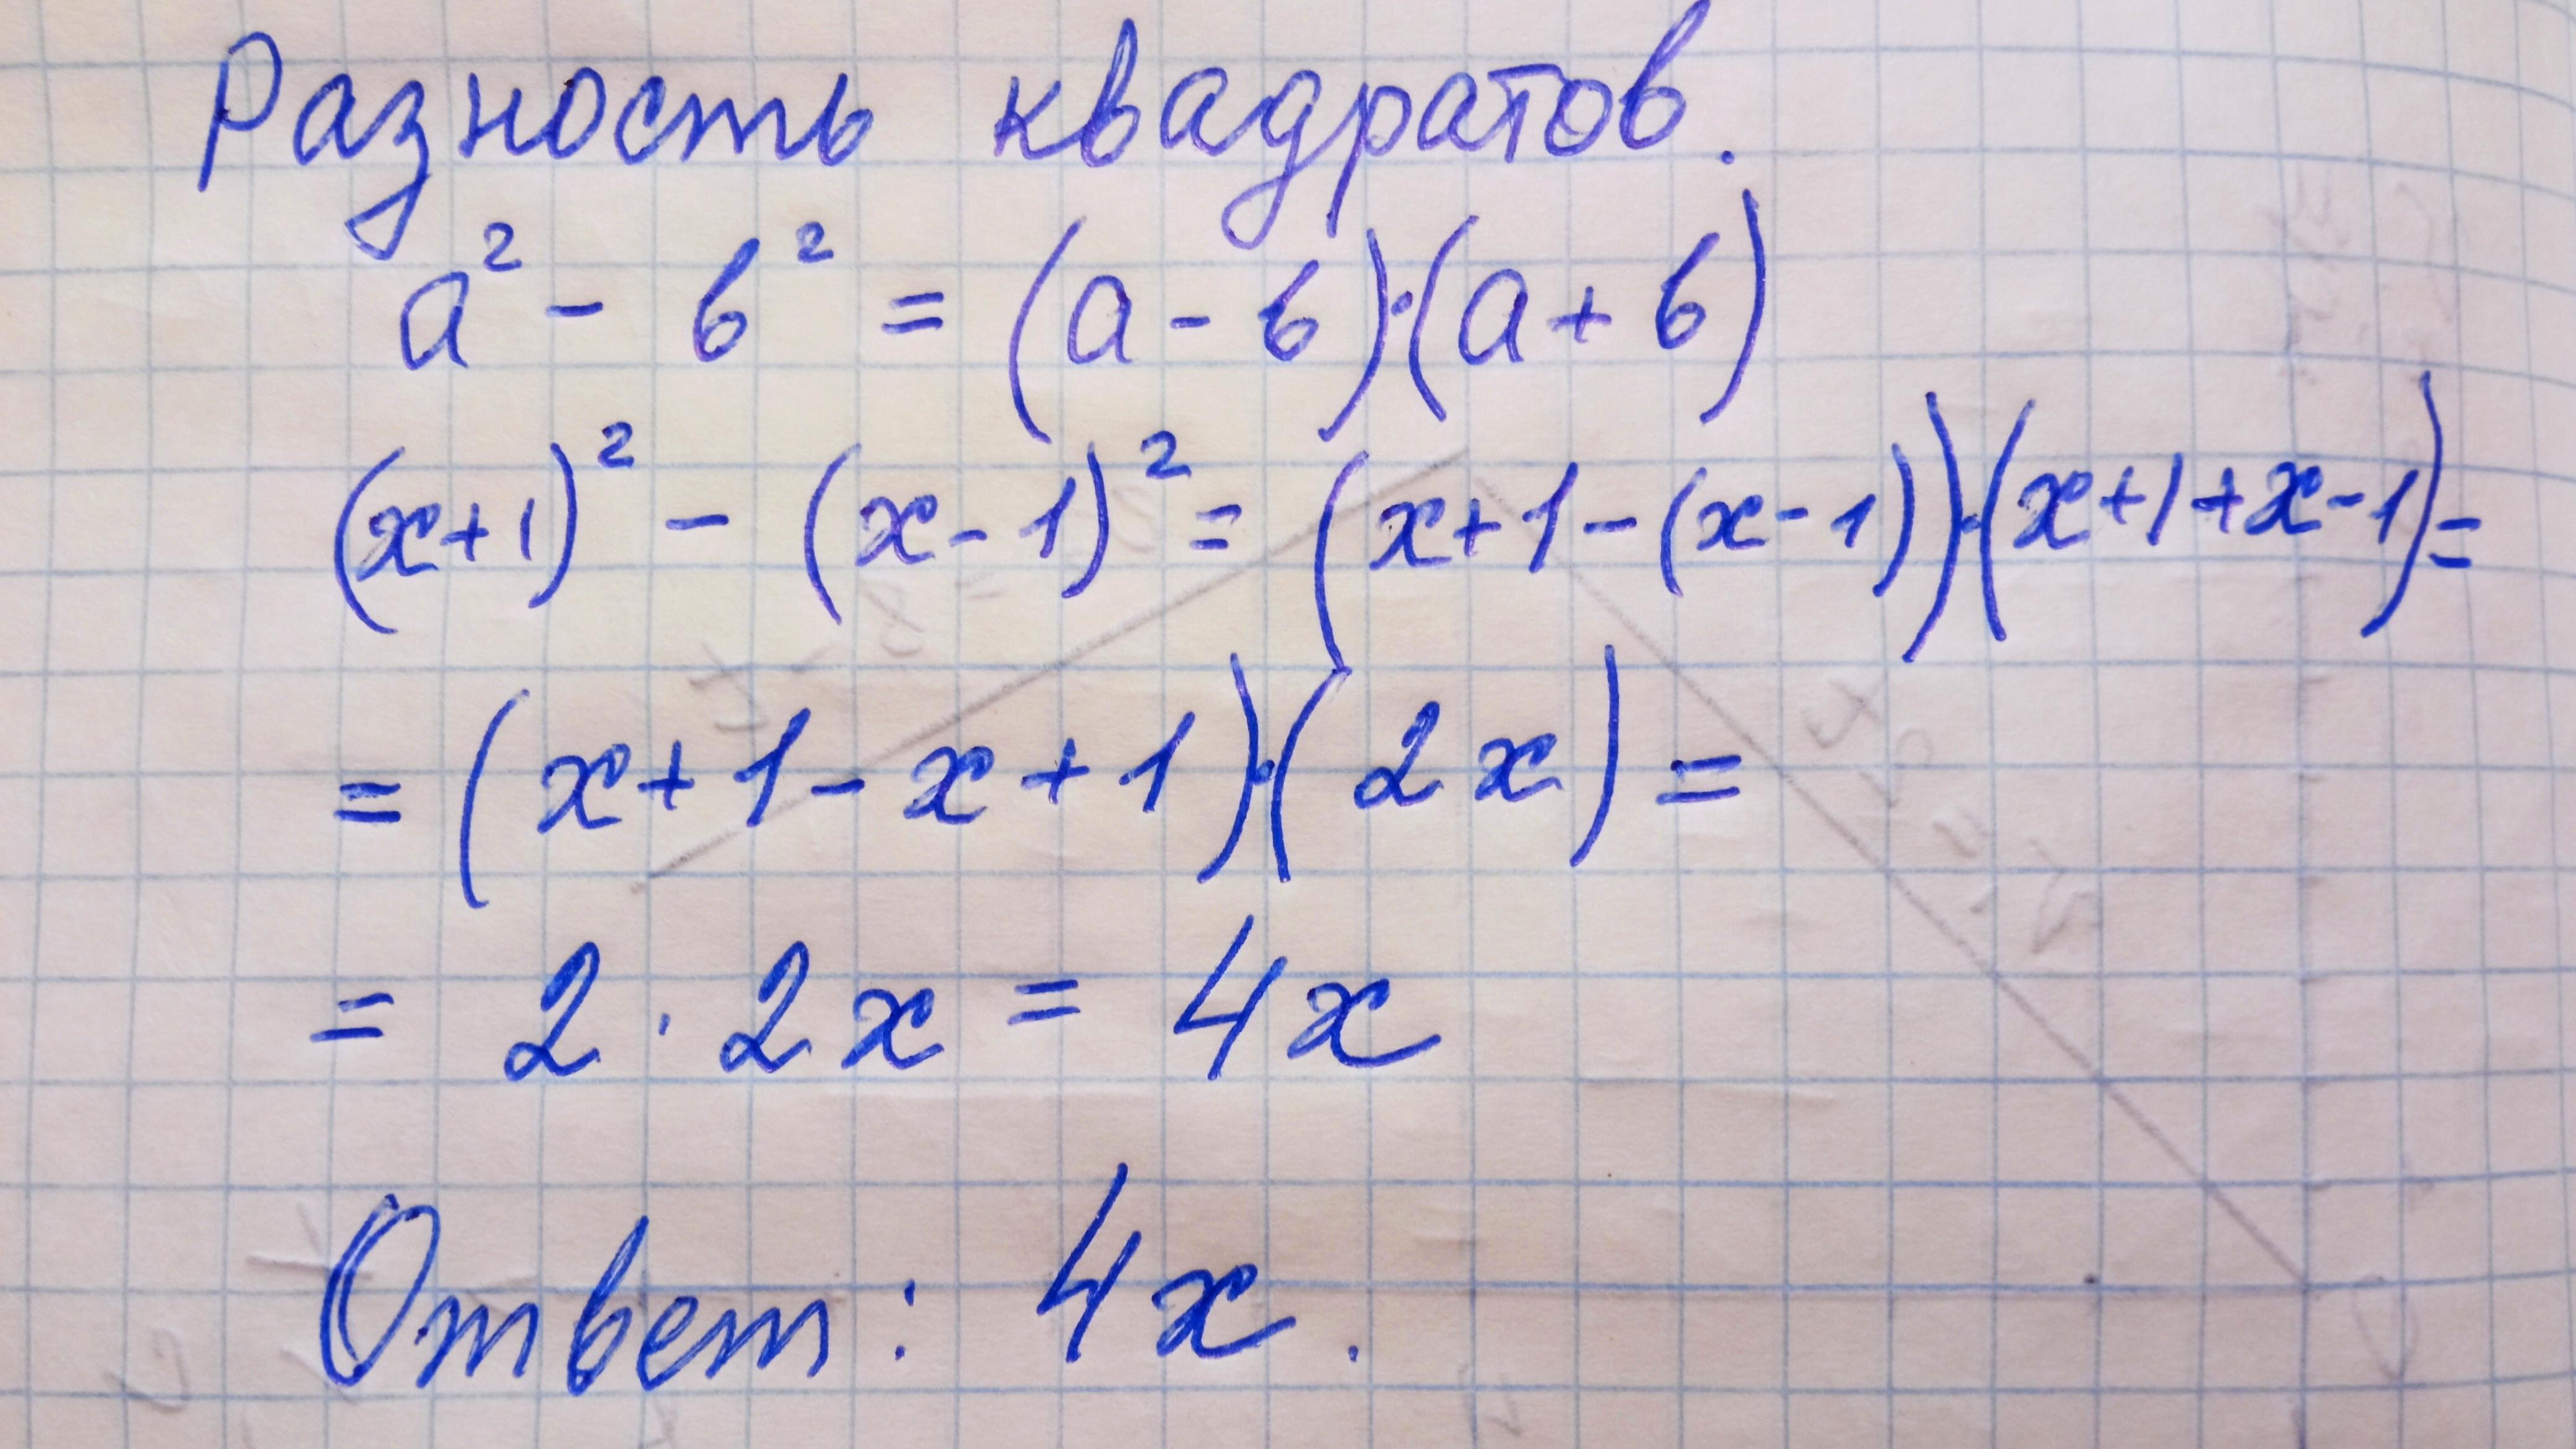 Разность квадратов.
a² - b² = (a - b)·(a + b)
(x+1)² - (x-1)² = (x+1-(x-1))·(x+1+x-1)=
= (x+1-x+1)·(2x) =
= 2·2x = 4x
Ответ: 4x.